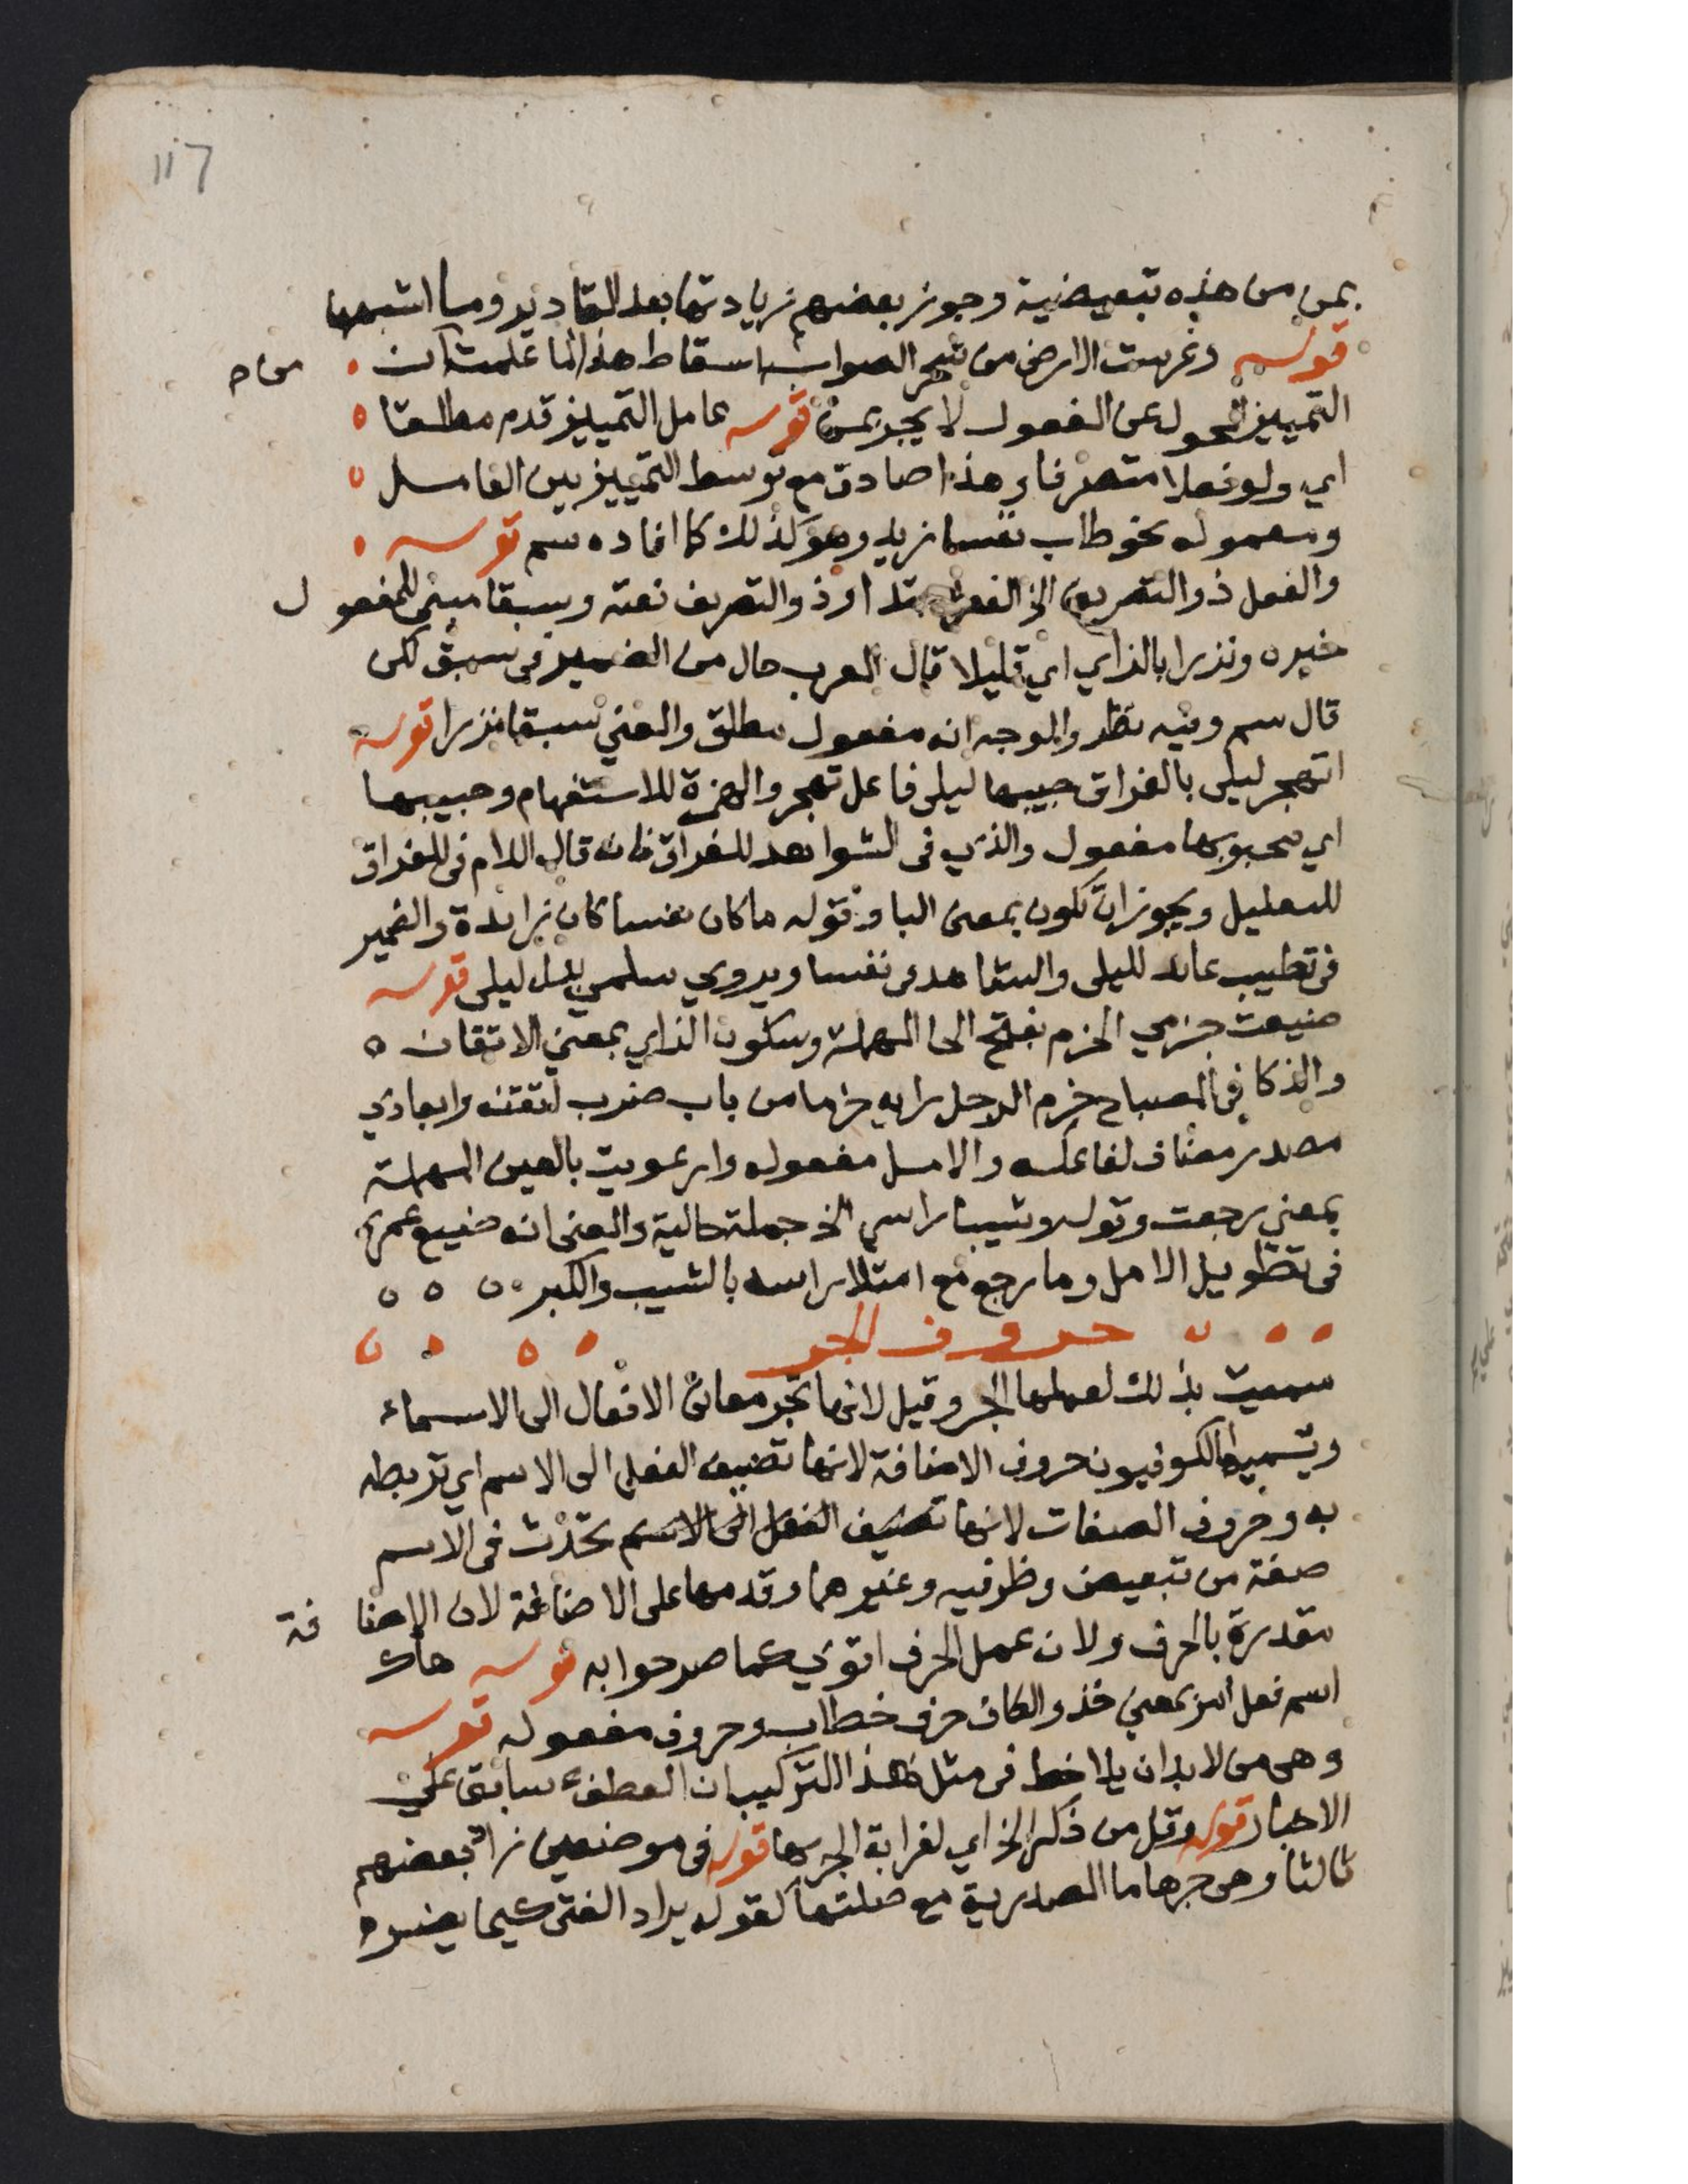 117
بمن من هذه تبعيضية وجوز بعضهم زيادتها بعد المقادير وما اشبهها
قوله وغرست الارض من شجر الصواب اسقاط هذا لما علمت ان من ح
التمييز المحول عن المفعول لا يجر بمن قوله عامل التمييز قدم مطلقا
اي ولو فعلا متصرفا وهذا صادق مع توسط التمييز بين العامل
ومعموله نحو طاب نفسا زيد وهو كذلك كما افاده سم قوله
والفعل ذو التصريف الخ الفعل مبتدا وذو التصريف نعته وسبقا مبني للمفعول
خبره ونزرا بالزاي اي قليلا قال المعرب حال من الضمير في سبق لكن
قال سم وفيه نظر والوجه انه مفعول مطلق والمعني سبقا نزرا قوله
اتهجر ليلى بالفراق حبيبها ليلى فاعل تهجر والهمزة للاستفهام وحبيبها
اي محبوبها مفعول والذي في الشواهد للفراق فانه قال اللام في للفراق
للتعليل ويجوز ان تكون بمعنى البا وقوله ما كان نفسا كان زايدة والضمير
في تطيب عائد لليلى والشاهد في نفسا ويروي سلمي بدل ليلى قوله
ضيعت حزمي الحزم بفتح الحا المهملة وسكون الزاي بمعني الاتقان
والذكا في المصباح حزم الرجل رايه حزما من باب ضرب اتقنه وابعادي
مصدر مضاف لفاعله والامل مفعوله وارعويت بالعين المهملة
بمعني رجعت وقوله وشيبا راسي الخ جملة حالية والمعنى انه ضيع عمره
في تطويل الامل وما رجع مع امتلا راسه بالشيب والكبر
حروف الجر
سميت بذلك لعملها الجر وقيل لانها تجر معاني الافعال الى الاسماء
ويسميها الكوفيون حروف الاضافة لانها تضيف الفعل الى الاسم اي تربطه
به وحروف الصفات لانها تضيف الفعل الى الاسم تحدث في الاسم
صفة من تبعيض وظرفيه وغيرهما وقدمها على الاضافة لان الاضافة
مقدرة بالحرف ولان عمل الحرف اقوي كما صرحوا به قوله هاك
اسم فعل امر بمعني خذ والكاف حرف خطاب وحروف مفعوله قوله
وهي من لابد ان يلاحظ في مثل هذا التركيب ان العطف سابق على
الاخبار قوله وقل من ذكر الخ اي لغرابة الجر بها قوله في موضعين زاد بعضهم
ثالثا وهي جرها ما المصدرية مع صلتها كقوله يراد الفتى كيما يضره